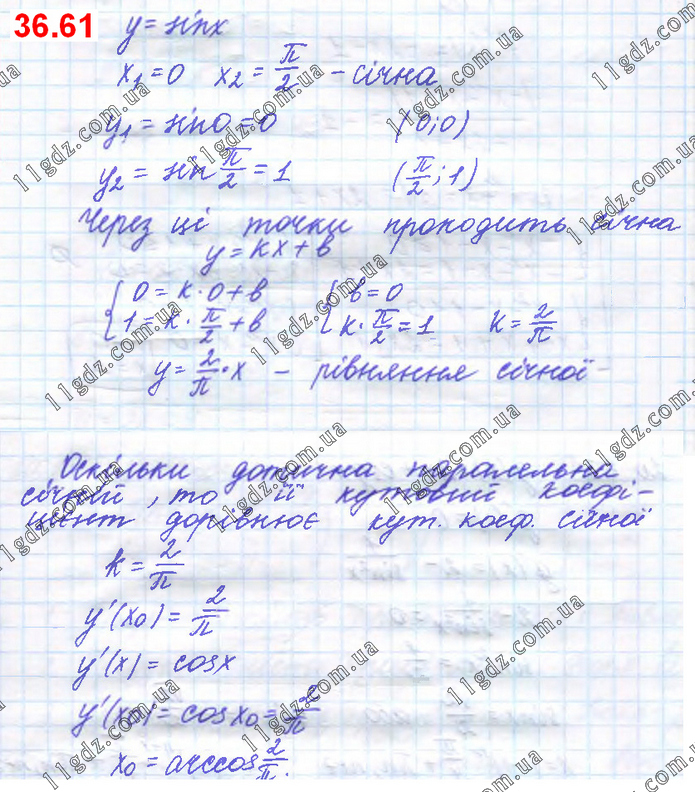 36.61
y = sin x
x₁ = 0   x₂ = π/2 – січна
y₁ = sin 0 = 0   (0; 0)
y₂ = sin π/2 = 1   (π/2; 1)
Через ці точки проходить січна
y = kx + в
{ 0 = k·0 + в   { в = 0
{ 1 = k·π/2 + в   { k·π/2 = 1   k = 2/π
y = 2/π · x – рівняння січної
Оскільки дотична паралельна
січній, то її кутовий коефі-
цієнт дорівнює кут. коеф. січної
k = 2/π
y'(x₀) = 2/π
y'(x) = cos x
y'(x₀) = cos x₀ = 2/π
x₀ = arccos 2/π.
11gdz.com.ua